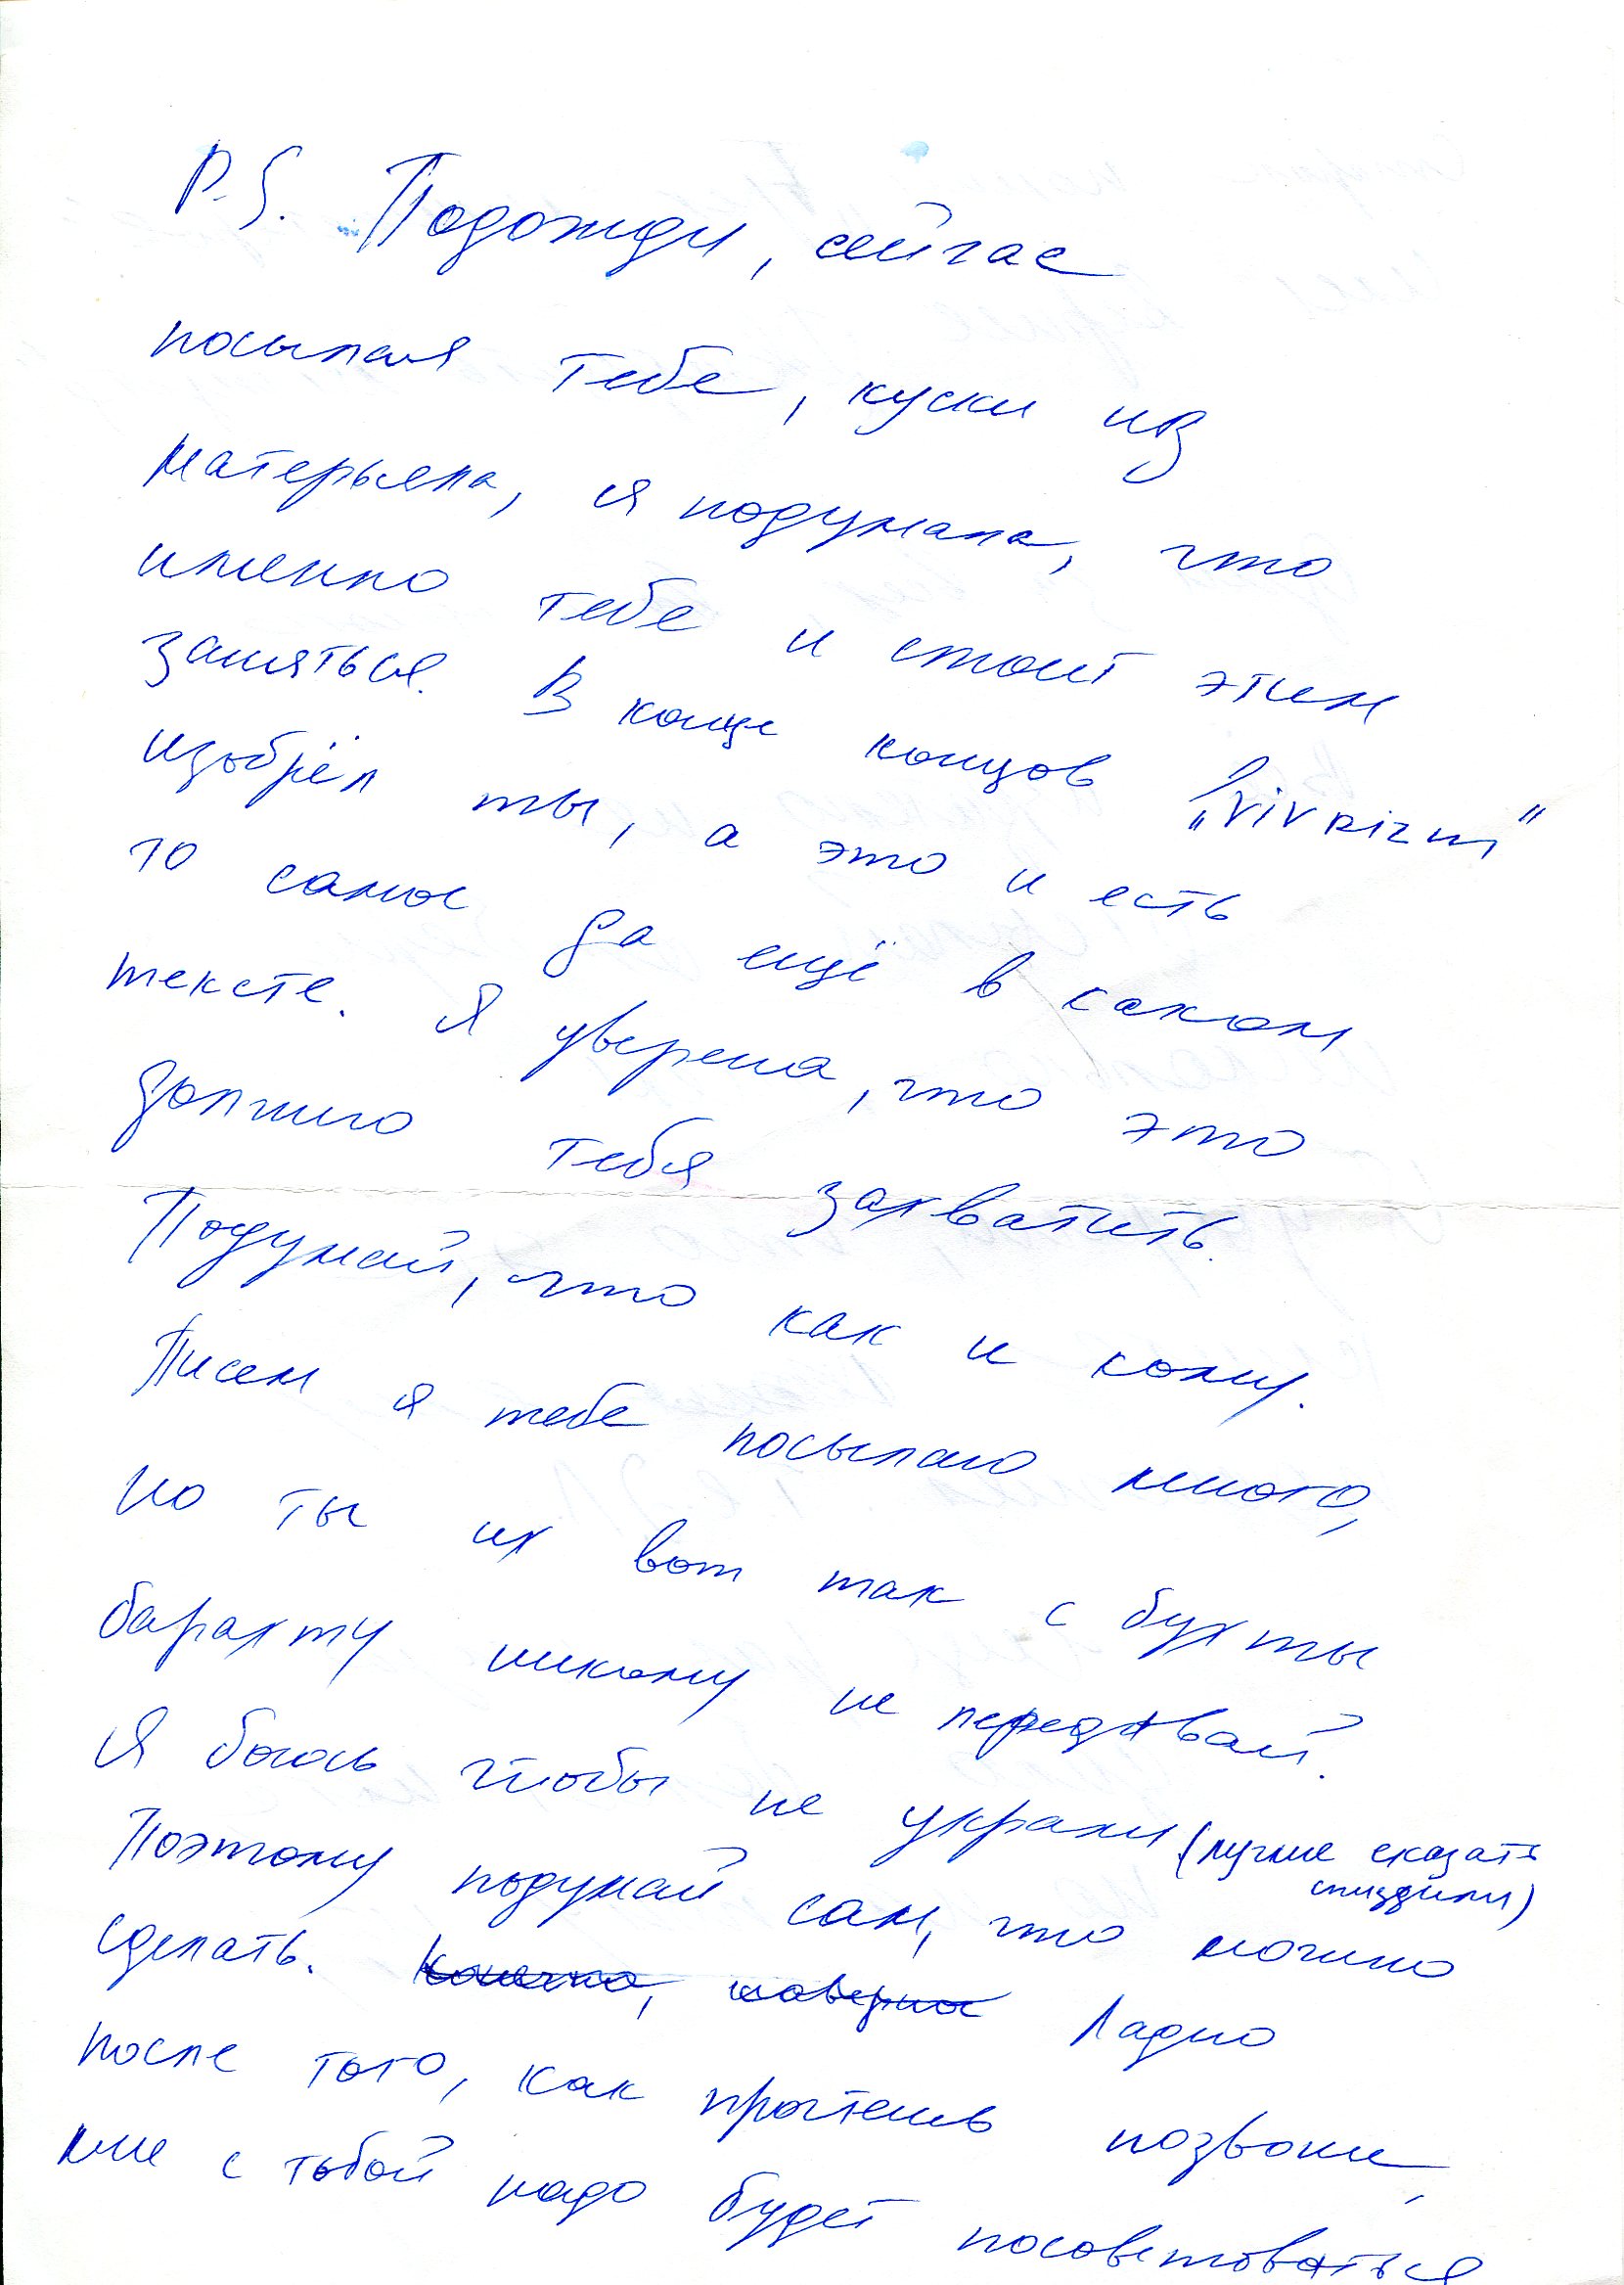 P.S. Подожди, сейчас
посылая тебе, куски из
матерьяла, я подумала, что
именно тебе и стоит этим
заняться. В конце концов
изобрёл ты, а это и есть
то самое да ещё в каком
тексте. Я уверена, что это
должно тебя захватить.
Подумай, что как и кому.
Писем я тебе посылаю много,
но ты их вот так с бухты
барахты никому не передавай.
Я боюсь чтобы не украли (лучше сказать
спиздили)
Поэтому подумай сам, что можно
сделать. Конечно, наверное Ладно
после того, как прочтешь позвони,
мне с тобой надо будет посоветоваться